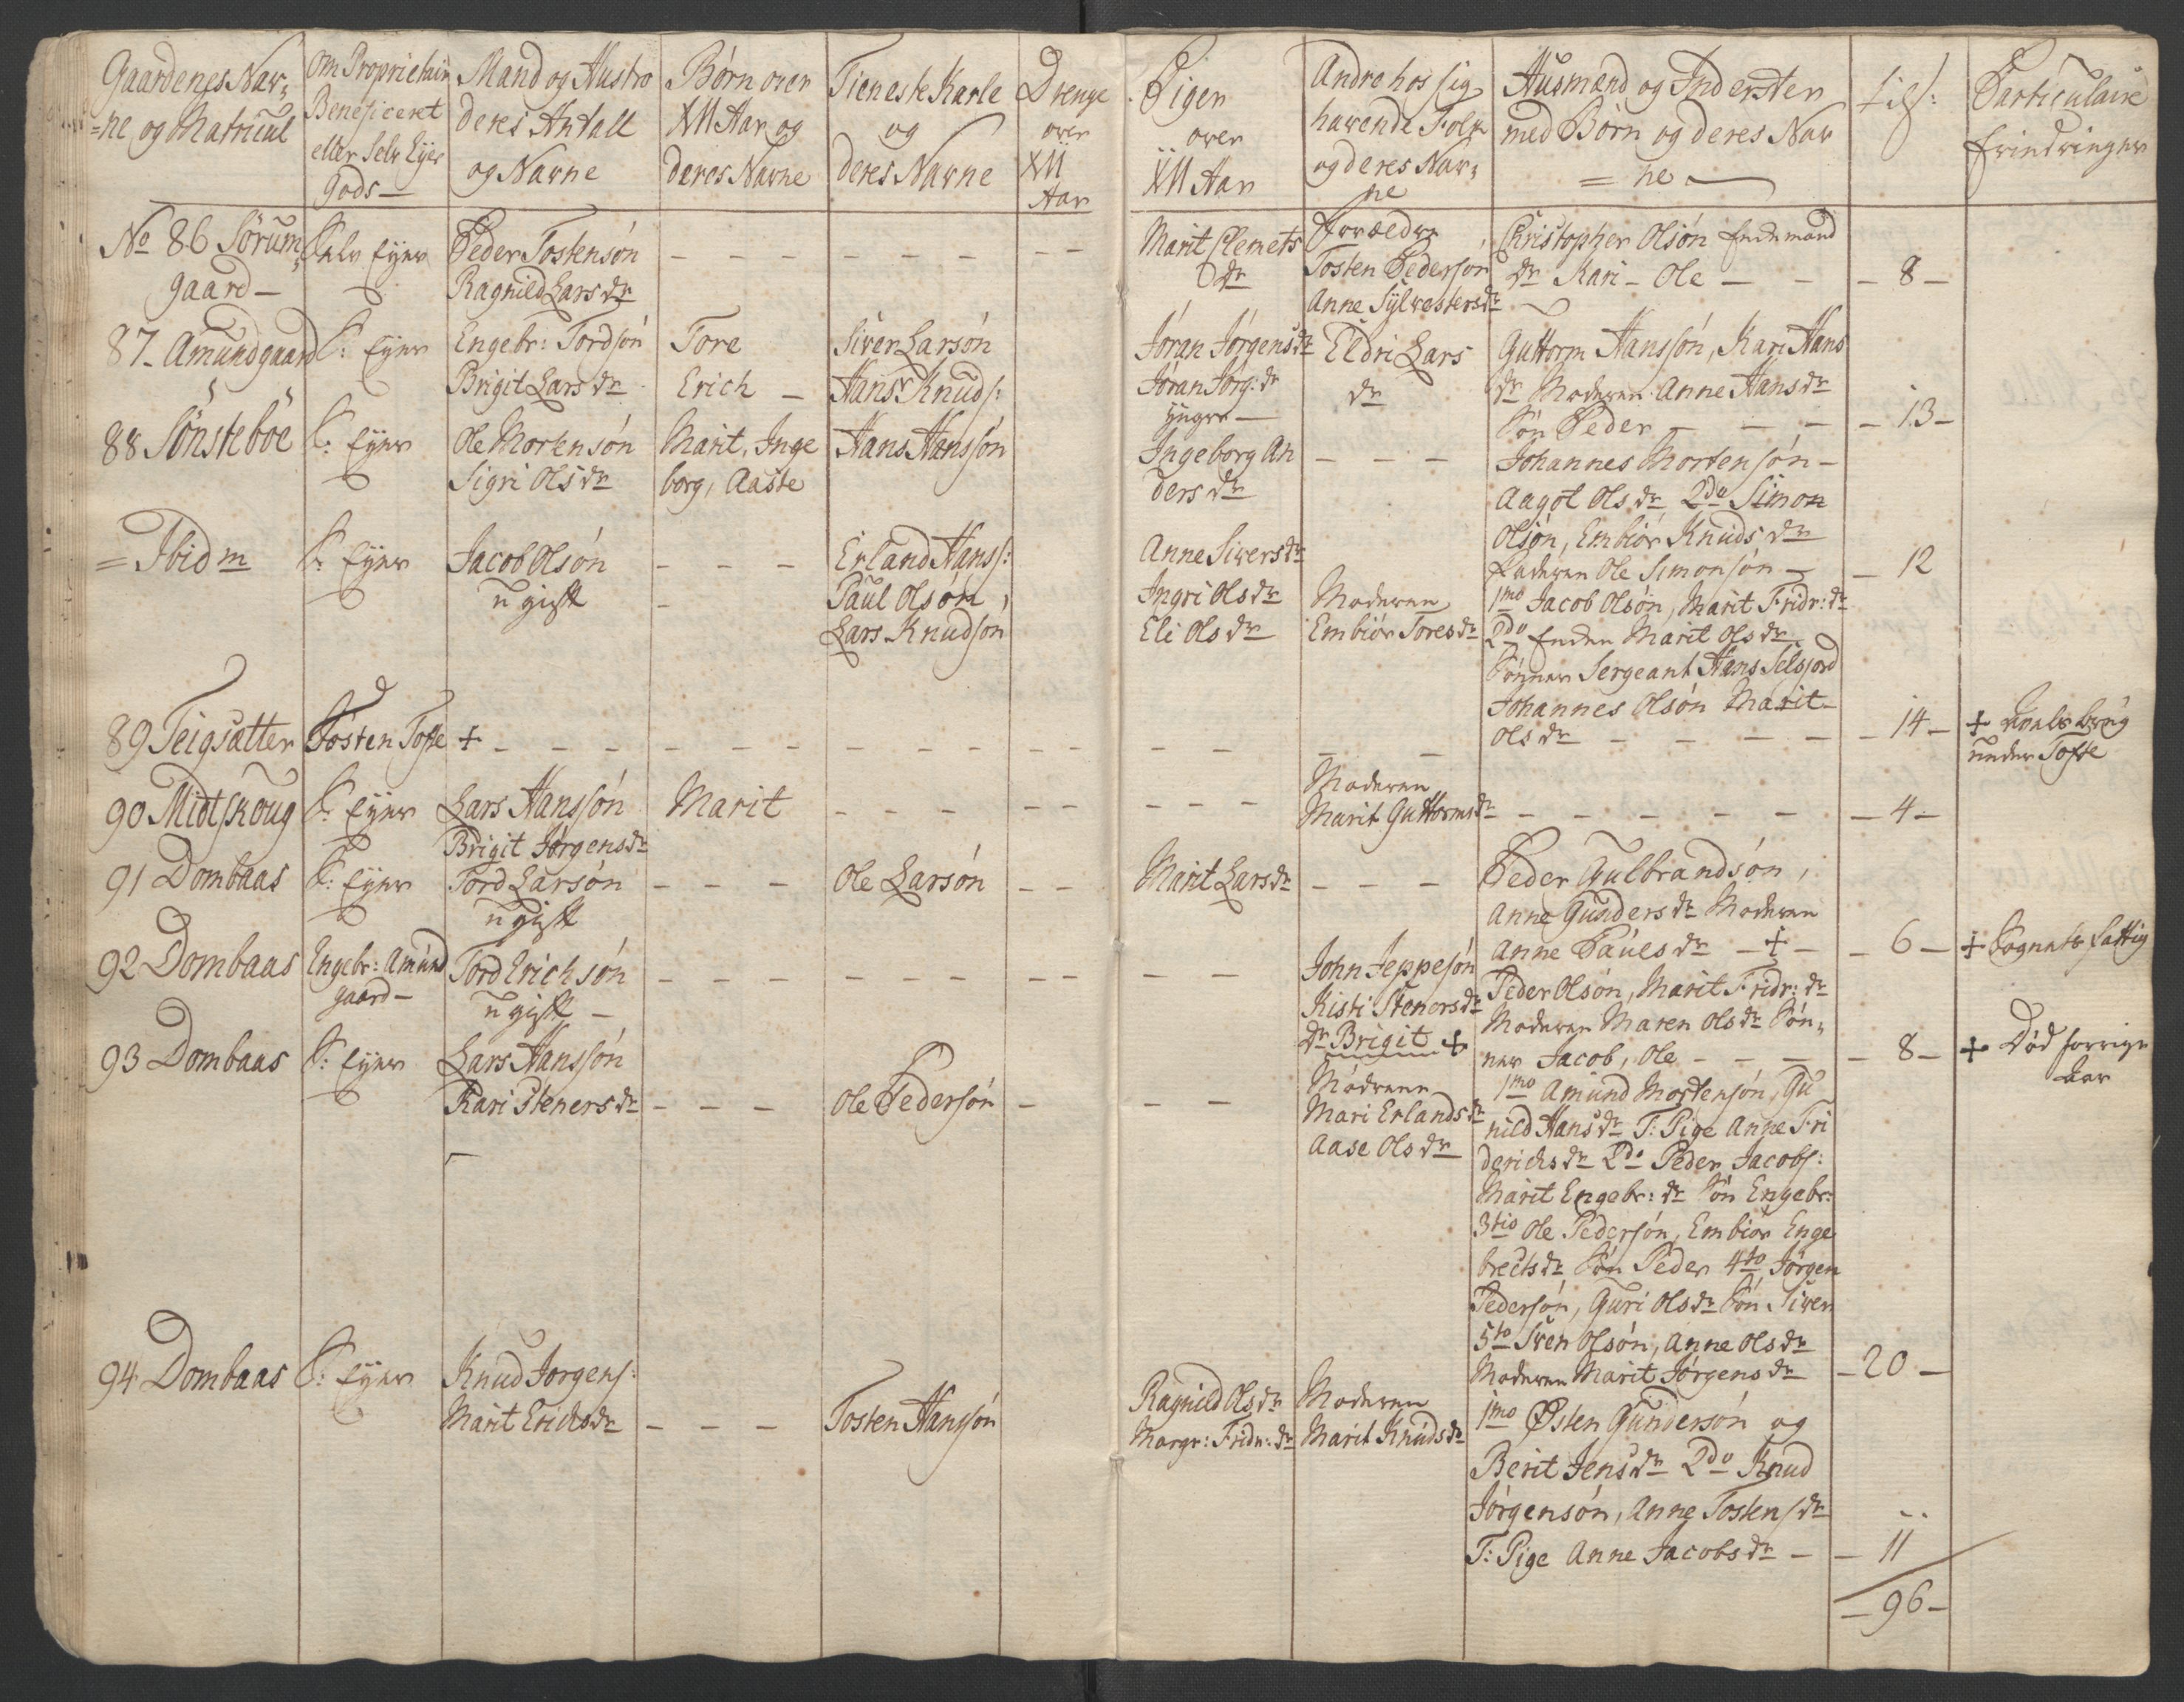 Gaardenes Nav-
=ne og Matricul
Om Proprietair
Beneficeret
eller Selv Eyer
Gods—
Mand og Hustro
deres Antall
og Navne
Børn over
XII Aar og
deres Navne
Tieneste Karle
og
deres Navne
Drenge
over
XII
Aar
Piger
over
XII Aar
Andre hos sig
havende Folk
og deres Nav-
ne
Husmænd og Indersten
med Børn og deres Nav
= ne —
Tils:
Particulaire
Erindringer
No 86 Sørum-
gaard —
Selv Eyer
Peder Tostensøn
Ragnild Lars dr
Marit Clemets
dr
Forældre
Tosten Pedersøn
Anne Sylvesters dr
Christopher Olsøn Enkemand
dr Kari - Ole — — 8 —
87 - Amundgaard
S: Eyer
Engebr: Tordsøn
Brigit Lars dr
Tore
Erich —
Siver Larsøn
Hans Knuds:
Jøran Jørgens dr
Jøran Jørg: dr
yngre —
Eldri Lars
dr
Guttorm Hansøn, Kari Hans
dr Moderen Anne Hans dr
Søn Peder — — — 13 —
88 Sønsteböe
S: Eyer
Ole Mortensøn
Sigri Ols dr
Marit, Inge
borg, Aaste
Hans Hansøn
Ingeborg An
ders dr
Johannes Mortensøn —
Aagot Ols dr 2do Simon
Olsøn, Embiør Knuds dr
Faderen Ole Simonsøn — — 12
= Ibidm
S: Eyer
Jacob Olsøn
ugift
Erland Hans:
Paul Olsøn,
Lars Knudsøn
Anne Sivers dr
Ingri Ols dr
Eli Ols dr
Moderen
Embiør Tores dr
1mo Jacob Olsøn, Marit Fridr: dr
2do Enken Marit Ols dr
Sønner Sergeant Hans Selsjord
Johannes Olsøn Marit
Ols dr — — — — 14 —
89 Teigsætter
Tosten Tofte
+
+ Avels brug
under Tofte
90 Midtskoug
S: Eyer
Lars Hansøn
Brigit Jørgens dr
Marit
Moderen
Marit Guttorms dr
— 4 —
91 Dombaas
S: Eyer
Tord Larsøn
ugift
Ole Larsøn
Marit Lars dr
Peder Gulbrandsøn,
Anne Gunders dr Moderen
Anne Pauls dr — + — — 6 —
+ Sognets fattig
92 Dombaas
Engebr: Amund
gaard —
Tord Erichsøn
ugift —
John Jeppesøn
Kisti Steners dr
dr Brigit +
Peder Olsøn, Marit Fridr: dr
Moderen Maren Ols dr Søn-
ner Jacob, Ole — — — 8 —
+ Død forrige
Aar
93 Dombaas
S: Eyer
Lars Hansøn
Kari Steners dr
Ole Pedersøn
Mødrene
Mari Erlands dr
Aase Ols dr
1mo Amund Mortensøn, Gu
nild Hans dr T: Pige Anne Fri
derichs dr 2do Peder Jacobs:
Marit Engebr: dr Søn Engebr:
3tio Ole Pedersøn, Embiør Enge
brects dr Søn Peder 4to Jørgen
Pedersøn, Guri Ols dr Søn Siver
5to Sven Olsøn, Anne Ols dr
Moderen Marit Jørgens dr — 20 —
94 Dombaas
S: Eyer
Knud Jørgens:
Marit Erichs dr
Tosten Hansøn
Ragnild Ols dr
Margr: Fridr: dr
Moderen
Marit Knuds dr
1mo Østen Gundersøn og
Berit Jens dr 2do Knud
Jørgensøn, Anne Tostens dr
T: Pige Anne Jacobs dr — — 11
— 96 —